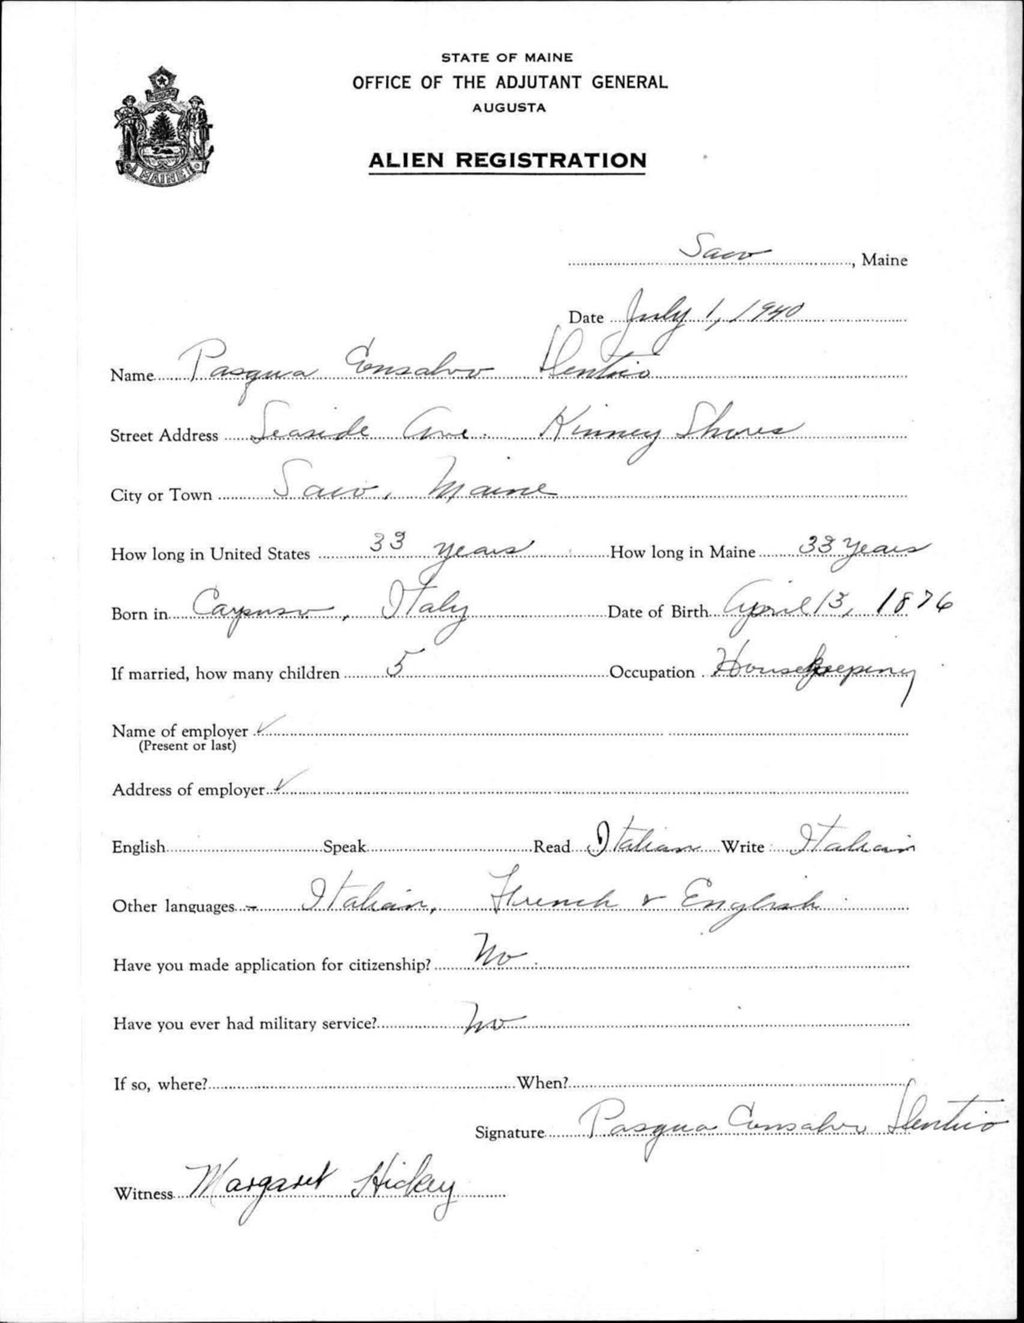 STATE OF MAINE
OFFICE OF THE ADJUTANT GENERAL
AUGUSTA
ALIEN REGISTRATION
MAINE
Saco, Maine
Date July 1, 1940
Name Pasqua Consalvo
Street Address Seaside Ave. Kinney Shores
City or Town Saco, Maine
How long in United States 33 years How long in Maine 33 years
Born in Italy Date of Birth April 13, 1876
If married, how many children 5 Occupation Housekeeping
Name of employer ✓
(Present or last)
Address of employer ✓
English Speak Read Italian Write Italian
Other languages - Italian, French & English
Have you made application for citizenship? No
Have you ever had military service? No
If so, where? When?
Signature Pasqua Consalvo
Witness Margaret Hickey